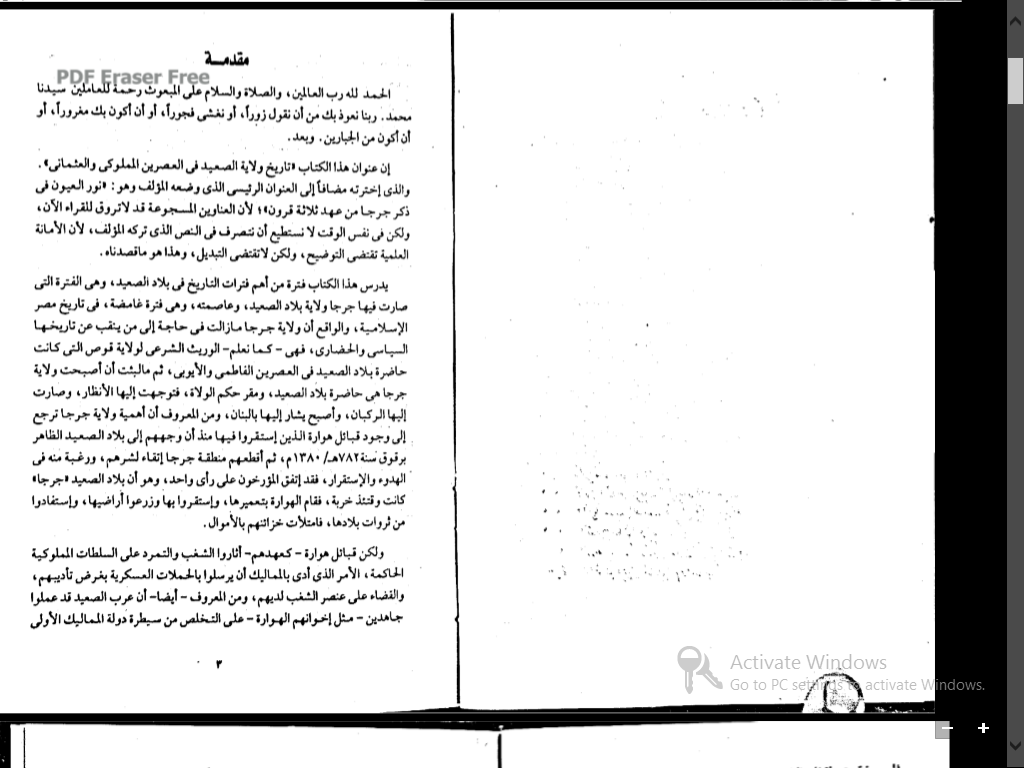 مقدمـــة
PDF Eraser Free
الحمد لله رب العالمين، والصلاة والسلام على المبعوث رحمة للعاملين سيدنا
محمد. ربنا نعوذ بك من أن نقول زوراً، أو نغشى فجوراً، أو أن أكون بك مغروراً، أو
أن أكون من الجبارين. وبعد.
إن عنوان هذا الكتاب «تاريخ ولاية الصعيد فى العصرين المملوكى والعثمانى».
والذى إخترته مضافاً إلى العنوان الرئيسى الذى وضعه المؤلف وهو: «نور العيون فى
ذكر جرجا من عهد ثلاثة قرون»؛ لأن العناوين المسجوعة قد لاتروق للقراء الآن،
ولكن فى نفس الوقت لا نستطيع أن نتصرف فى النص الذى تركه المؤلف، لأن الأمانة
العلمية تقتضى التوضيح، ولكن لاتقتضى التبديل، وهذا هو ماقصدناه.
يدرس هذا الكتاب فترة من أهم فترات التاريخ فى بلاد الصعيد، وهى الفترة التى
صارت فيها جرجا ولاية بلاد الصعيد، وعاصمته، وهى فترة غامضة، فى تاريخ مصر
الإسلامية، والواقع أن ولاية جرجا مازالت فى حاجة إلى من ينقب عن تاريخها
السياسى والحضارى، فهى - كما نعلم- الوريث الشرعى لولاية قوص التى كانت
حاضرة بلاد الصعيد فى العصرين الفاطمى والأيوبى، ثم مالبثت أن أصبحت ولاية
جرجا هى حاضرة بلاد الصعيد، ومقر حكم الولاة، فتوجهت إليها الأنظار، وصارت
إليها الركبان، وأصبح يشار إليها بالبنان، ومن المعروف أن أهمية ولاية جرجا ترجع
إلى وجود قبائل هوارة الذين إستقروا فيها منذ أن وجههم إلى بلاد الصعيد الظاهر
برقوق سنة ٧٨٢هـ/ ١٣٨٠م، ثم أقطعهم منطقة جرجا إتقاء لشرهم، ورغبة منه فى
الهدوء والإستقرار، فقد إتفق المؤرخون على رأى واحد، وهو أن بلاد الصعيد «جرجا»
كانت وقتئذ خربة، فقام الهوارة بتعميرها، وإستقروا بها وزرعوا أراضيها، وإستفادوا
من ثروات بلادها، فامتلأت خزائنهم بالأموال.
ولكن قبائل هوارة - كعهدهم- أثاروا الشغب والتمرد على السلطات المملوكية
الحاكمة، الأمر الذى أدى بالمماليك أن يرسلوا بالحملات العسكرية بغرض تأديبهم،
والقضاء على عنصر الشغب لديهم، ومن المعروف - أيضا- أن عرب الصعيد قد عملوا
جاهدين - مثل إخوانهم الهوارة - على التخلص من سيطرة دولة المماليك الأولى
٣
Activate Windows
Go to PC settings to activate Windows.